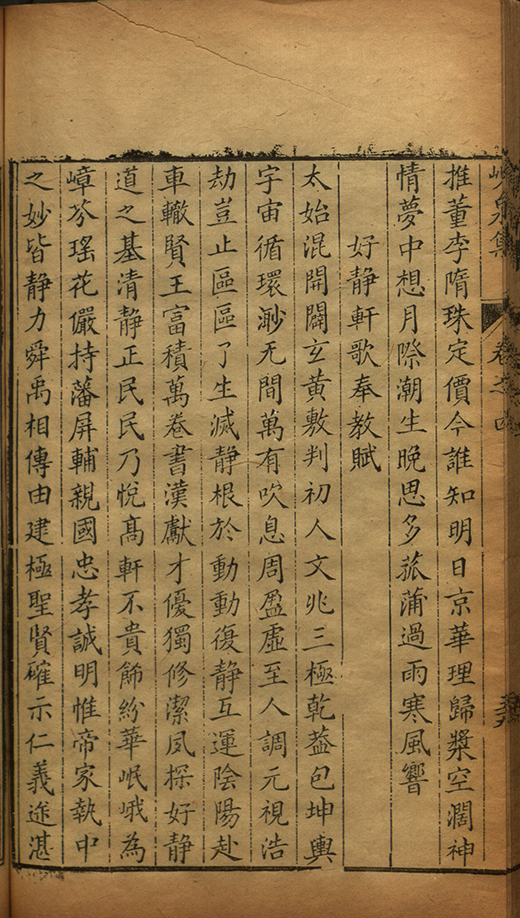 峴泉集 卷之四
推董李隋珠定價今誰知明日京華理歸槳空濶神
情夢中想月際潮生晚思多菰蒲過雨寒風響
好靜軒歌奉教賦
太始混開闢玄黃敷判初人文兆三極乾蓋包坤輿
宇宙循環渺无間萬有吹息周盈虛至人調元視浩
劫豈止區區了生滅靜根於動動復靜互運陰陽赴
車轍賢王富積萬卷書漢獻才優獨修潔夙探好靜
道之基清靜正民民乃悅髙軒不貴飾紛華岷峨為
嶂芬瑤花儼持藩屏輔親國忠孝誠明惟帝家執中
之妙皆靜力舜禹相傳由建極聖賢確示仁義途湛